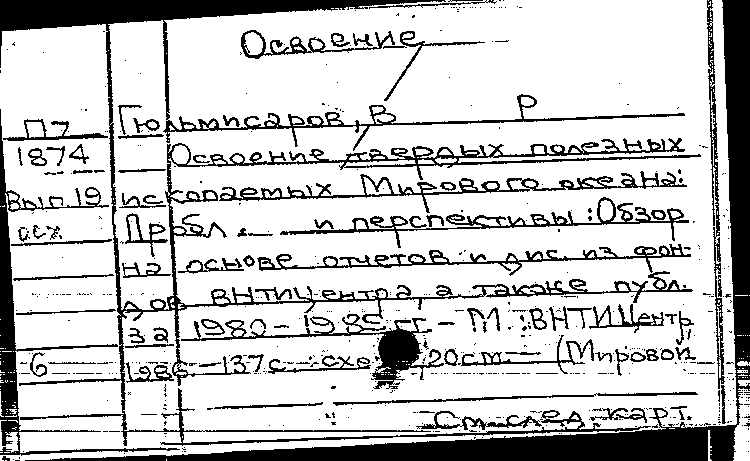 Освоение
П7 Гюльмисаров, В Р
1874 Освоение твердых полезных
Вып.19 ископаемых Мирового океана:
осх Пробл. и перспективы : Обзор
на основе отчетов и дис. из фон-
дов ВНТИЦентра, а также публ.
за 1980-1985 гг. - М.: ВНТИЦентр
6 1986. - 137 с. : схе 20см. - (Мировой
См. след. карт.